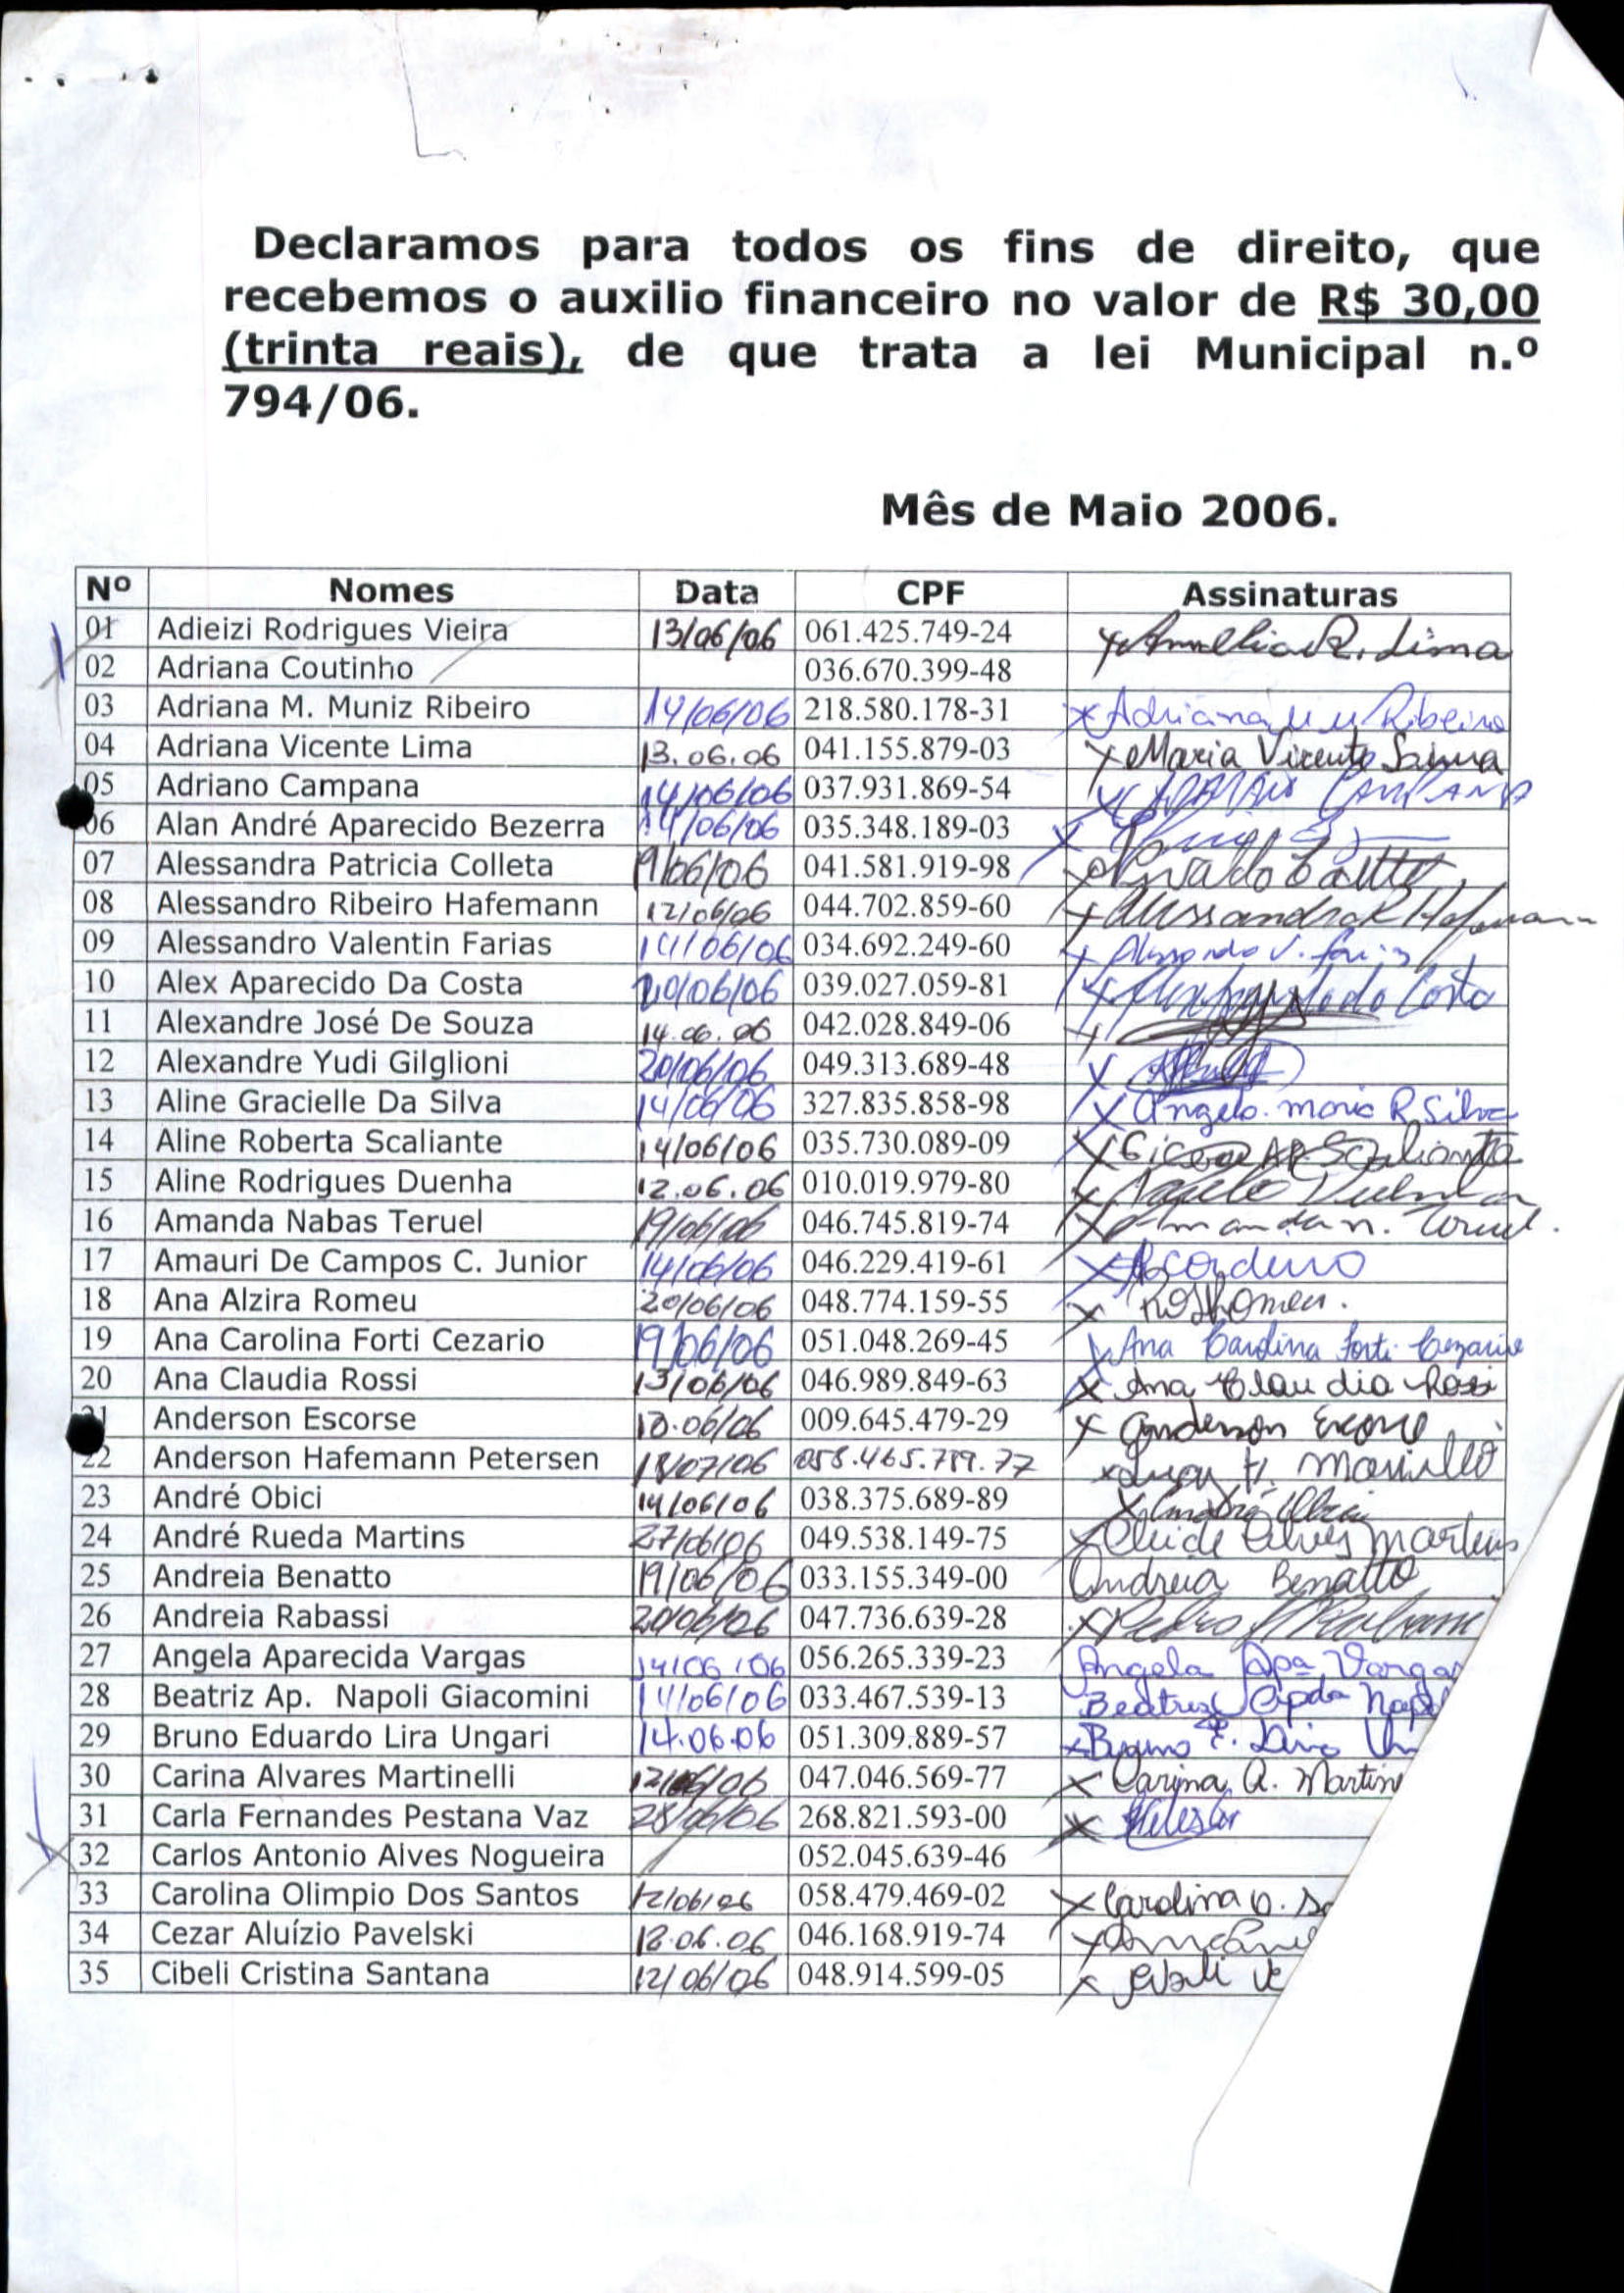 Declaramos para todos os fins de direito, que
recebemos o auxilio financeiro no valor de R$ 30,00
(trinta reais), de que trata a lei Municipal n.º
794/06.
Mês de Maio 2006.
Nº Nomes Data CPF Assinaturas
01 Adieizi Rodrigues Vieira 13/06/06 061.425.749-24 R. Lima
02 Adriana Coutinho 036.670.399-48
03 Adriana M. Muniz Ribeiro 14/06/06 218.580.178-31 x Adriana M M Ribeiro
04 Adriana Vicente Lima 13.06.06 041.155.879-03 x Maria Vicente Lima
05 Adriano Campana 14/06/06 037.931.869-54 x Campana
06 Alan André Aparecido Bezerra 14/06/06 035.348.189-03 x
07 Alessandra Patricia Colleta 19/06/06 041.581.919-98 x
08 Alessandro Ribeiro Hafemann 12/06/06 044.702.859-60 x Alessandro R Hafemann
09 Alessandro Valentin Farias 14/06/06 034.692.249-60 x Alessandro V. Farias
10 Alex Aparecido Da Costa 20/06/06 039.027.059-81 x Alex Costa
11 Alexandre José De Souza 14.06.06 042.028.849-06 x
12 Alexandre Yudi Gilglioni 20/06/06 049.313.689-48 x
13 Aline Gracielle Da Silva 14/06/06 327.835.858-98 x Angela Maria R Silva
14 Aline Roberta Scaliante 14/06/06 035.730.089-09 x Scaliante
15 Aline Rodrigues Duenha 12.06.06 010.019.979-80 x Duenha
16 Amanda Nabas Teruel 19/06/06 046.745.819-74 x Amanda n. Teruel.
17 Amauri De Campos C. Junior 14/06/06 046.229.419-61 x
18 Ana Alzira Romeu 20/06/06 048.774.159-55 x
19 Ana Carolina Forti Cezario 19/06/06 051.048.269-45 x Ana Carolina Forti Cezario
20 Ana Claudia Rossi 13/06/06 046.989.849-63 x Ana Claudia Rossi
21 Anderson Escorse 046.06/06 009.645.479-29 x Anderson Escorse
22 Anderson Hafemann Petersen 18/07/06 058.465.789.77 x H.
23 André Obici 14/06/06 038.375.689-89 x André Obici
24 André Rueda Martins 27/06/06 049.538.149-75 x Cleide Alves Martins
25 Andreia Benatto 19/06/06 033.155.349-00 Andreia Benatto
26 Andreia Rabassi 20/06/06 047.736.639-28 x Pedro
27 Angela Aparecida Vargas 14/06/06 056.265.339-23 Angela Apª Vargas
28 Beatriz Ap. Napoli Giacomini 14/06/06 033.467.539-13 Beatriz Apda Nap
29 Bruno Eduardo Lira Ungari 14.06.06 051.309.889-57 x Bruno E. Lira Un
30 Carina Alvares Martinelli 12/06/06 047.046.569-77 x Carina A. Martin
31 Carla Fernandes Pestana Vaz 28/06/06 268.821.593-00 x
32 Carlos Antonio Alves Nogueira 052.045.639-46
33 Carolina Olimpio Dos Santos 12/06/06 058.479.469-02 x Carolina O. Sa
34 Cezar Aluízio Pavelski 12.06.06 046.168.919-74 x
35 Cibeli Cristina Santana 12/06/06 048.914.599-05 x